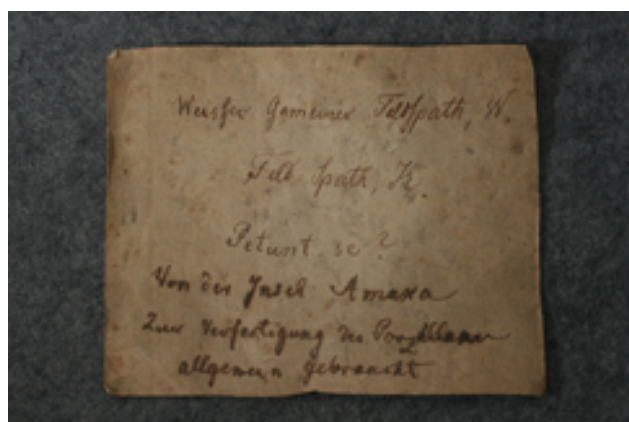 Weisser Gemeiner Feldspath, W.
Feld Spath, K.
Petunt se?
Von der Insel Amaxa
Zur Verfertigung des Porzellans
allgemein gebraucht